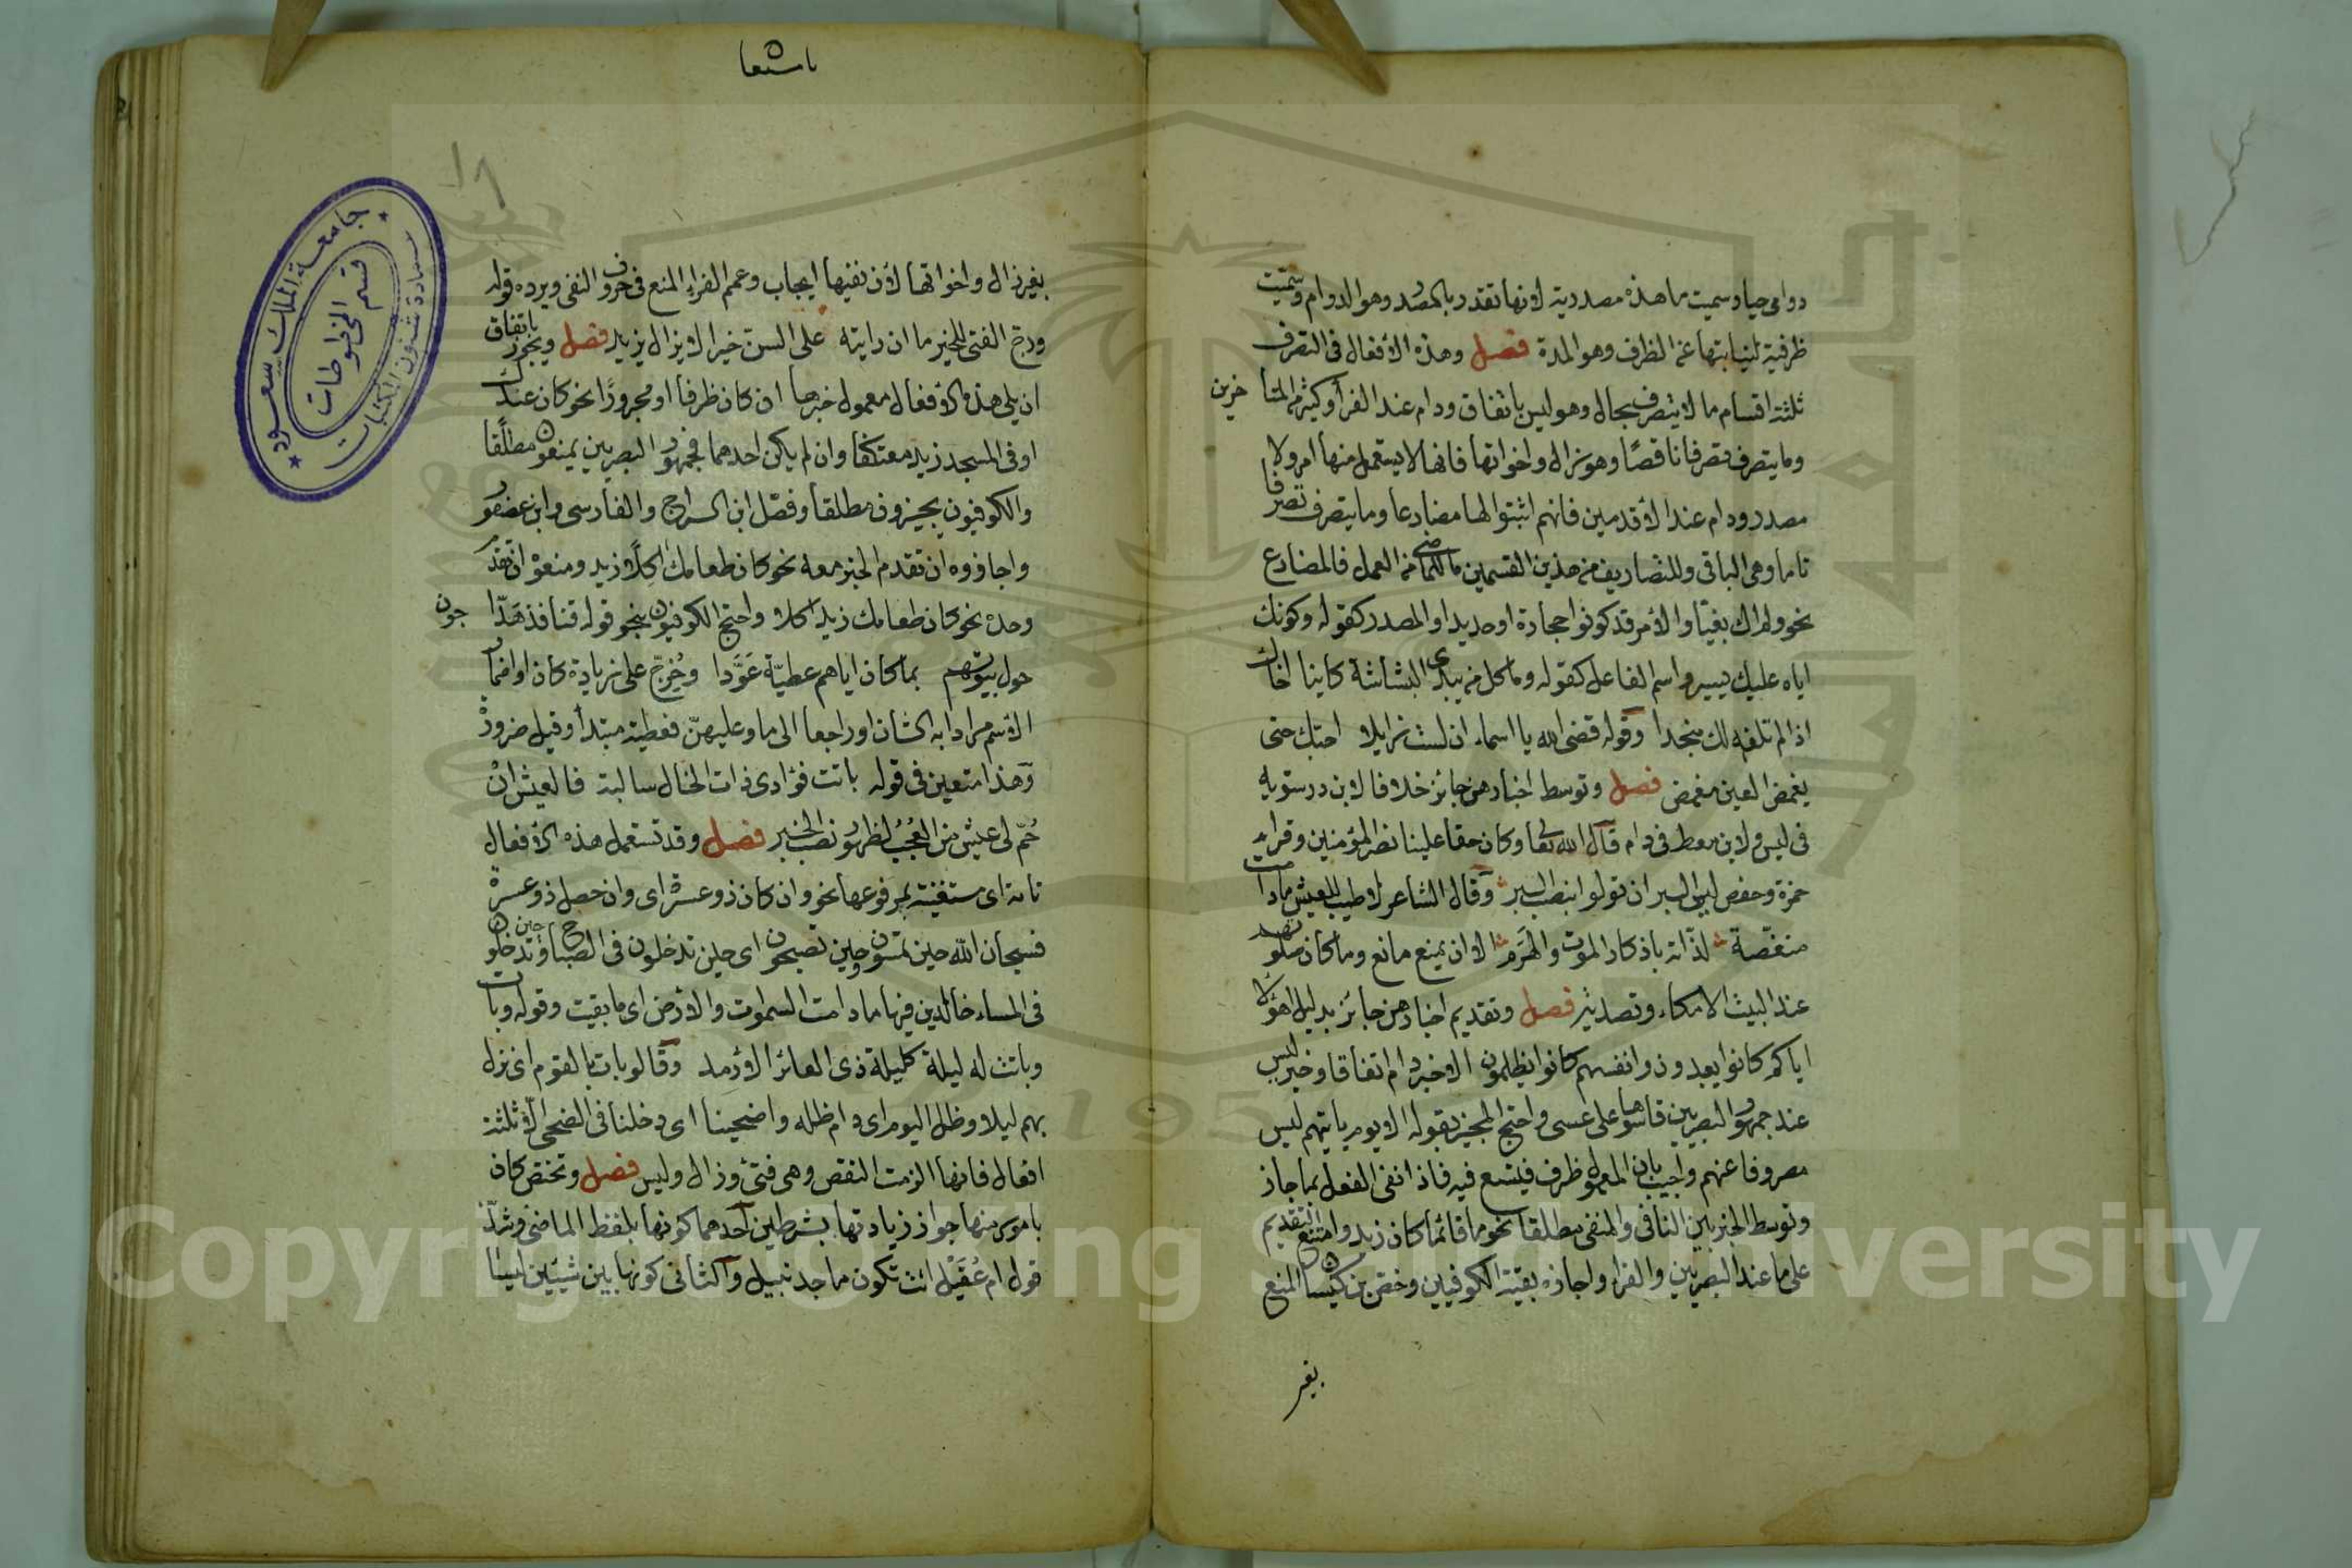 دوامى حيا وسميت ما هذه مصدرية لانها تقدر بالمصدر وهو الدوام وسميت
ظرفية لنيابتها عن الظرف وهو المدة فصل وهذه الأفعال فى التصرف
ثلثة اقسام ما لا يتصرف بحال وهو ليس باتفاق ودام عند الفرأ وكثير من المتأخرين
وما يتصرف تصرفا ناقصًا وهو زال واخواتها فانها لا يستعمل منها امر ولا
مصدر ودام عند الأقدمين فانهم اثبتوا لها مضارعا وما يتصرف تصرفا
تاما وهى الباقى وللتصاريف من هذين القسمين ما للماضى من العمل فالمضارع
نحو ولم اك بغيّا والأمر قد كونوا حجارة او حديدا والمصدر كقوله وكونك
اياه عليك يسير واسم الفاعل كقوله وما كل من يبدى البشاشة كاينا اخاك
اذا لم تلفه لك منجدا وقوله قضى الله يا اسماء ان لست زايلا احبك حتى
يغمض العين مغمض فصل وتوسط اخبارهن جائز خلافا لابن درستويه
فى ليس ولابن معط فى دام قال الله تعا وكان حقا علينا نصر المؤمنين وقراء
حمزة وحفص ليس البر ان تولوا بنصب البر وقال الشاعر لا طيب للعيش مادامت
منغّصة لذّاته باذكار الموت والهَرَم الا ان يمنع مانع وما كان صلوتهم
عند البيت الا مكاء وتصدية فصل وتقديم اخبارهن جائز بدليل اهؤلا
اياكم كانوا يعبدون وانفسهم كانوا يظلمون الا خبر دام اتفاقا وخبر ليس
عند جمهور البصريين قاسوها على عسى واحتج المجيز بقوله الا يوم ياتيهم ليس
مصروفا عنهم واجيب بان المعمول ظرف فيتسع فيه فاذا نفى الفعل بما جاز
وتوسط الخبر بين النافى والمنفى مطلقا نحو ما قائما كان زيد وامتنع التقديم
على ما عند البصريين والفرا واجازه بقية الكوفيين وخص بن كيسان المنع
بغير
١٨
بغير زال واخواتها لأن نفيها ايجاب وعمم الفراء المنع فى حروف النفى ويرده قوله
ورج الفتى للخير ما ان رايته على السن خيرا لا يزال يزيد فصل ويجوز باتفاق
ان يلى هذه الأفعال معمول خبرها ان كان ظرفا او مجرورًا نحو كان عندك
او فى المسجد زيد معتكفا وان لم يكن احدهما فجمهور البصريين يمنعون مطلقا
والكوفيون يجيزون مطلقا وفصّل ابن السراج والفارسى وابن عصفور
واجازوه ان تقدم الخبر معه نحو كان طعامك اكلًا زيد ومنعوا ان تقدم
وحده نحو كان طعامك زيد اكلا واحتج الكوفيون بنحو قوله قنافذ هدّاجون
حول بيوتهم بما كان اياهم عطيّة عَوَّدا وخُرّج على زيادة كان او اضمار
الأسم مرادا به الشان او راجعا الى ما وعليهنّ فعطية مبتدأ وقيل ضرورة
وهذا متعين فى قوله باتت فؤادى ذات الخال سالبة فالعيش ان
حُمّ لى عيش من العجب لظهور نصب الخبر فصل وقد تستعمل هذه الأفعال
تامة اى مستغنية بمرفوعها نحو وان كان ذو عسرة اى وان حصل ذو عسرة
فسبحان الله حين تمسون وحين تصبحون اى حين تدخلون فى الصباح وحين تدخلون
فى المساء خالدين فيها ما دامت السموات والأرض اى ما بقيت وقوله وبات
وباتت له ليلة كليلة ذى العائر الأرمد وقالوا بات بالقوم اى نزل
بهم ليلا وظل اليوم اى دام ظله واضحينا اى دخلنا فى الضحى الا ثلثة
افعال فانها الزمت النقص وهى فتئ وزال وليس فصل وتختص كان
بامور منها جواز زيادتها بشرطين احدهما كونها بلفظ الماضى وشذّ
قول ام عُقَيْل انت تكون ماجد نبيل والثانى كونها بين شيئين ليسا
جامعة الملك سعود
عمادة شئون المكتبات
قسم المخطوطات
Copyright © King Saud University
195